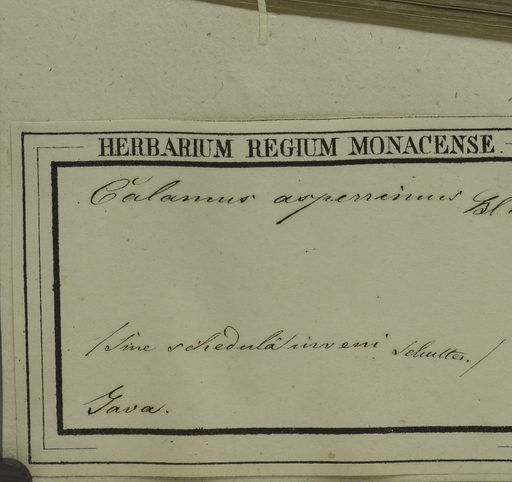 HERBARIUM REGIUM MONACENSE.
Calamus asperrimus Bl.
/Sine schedulâ inveni Schultes./
Java.